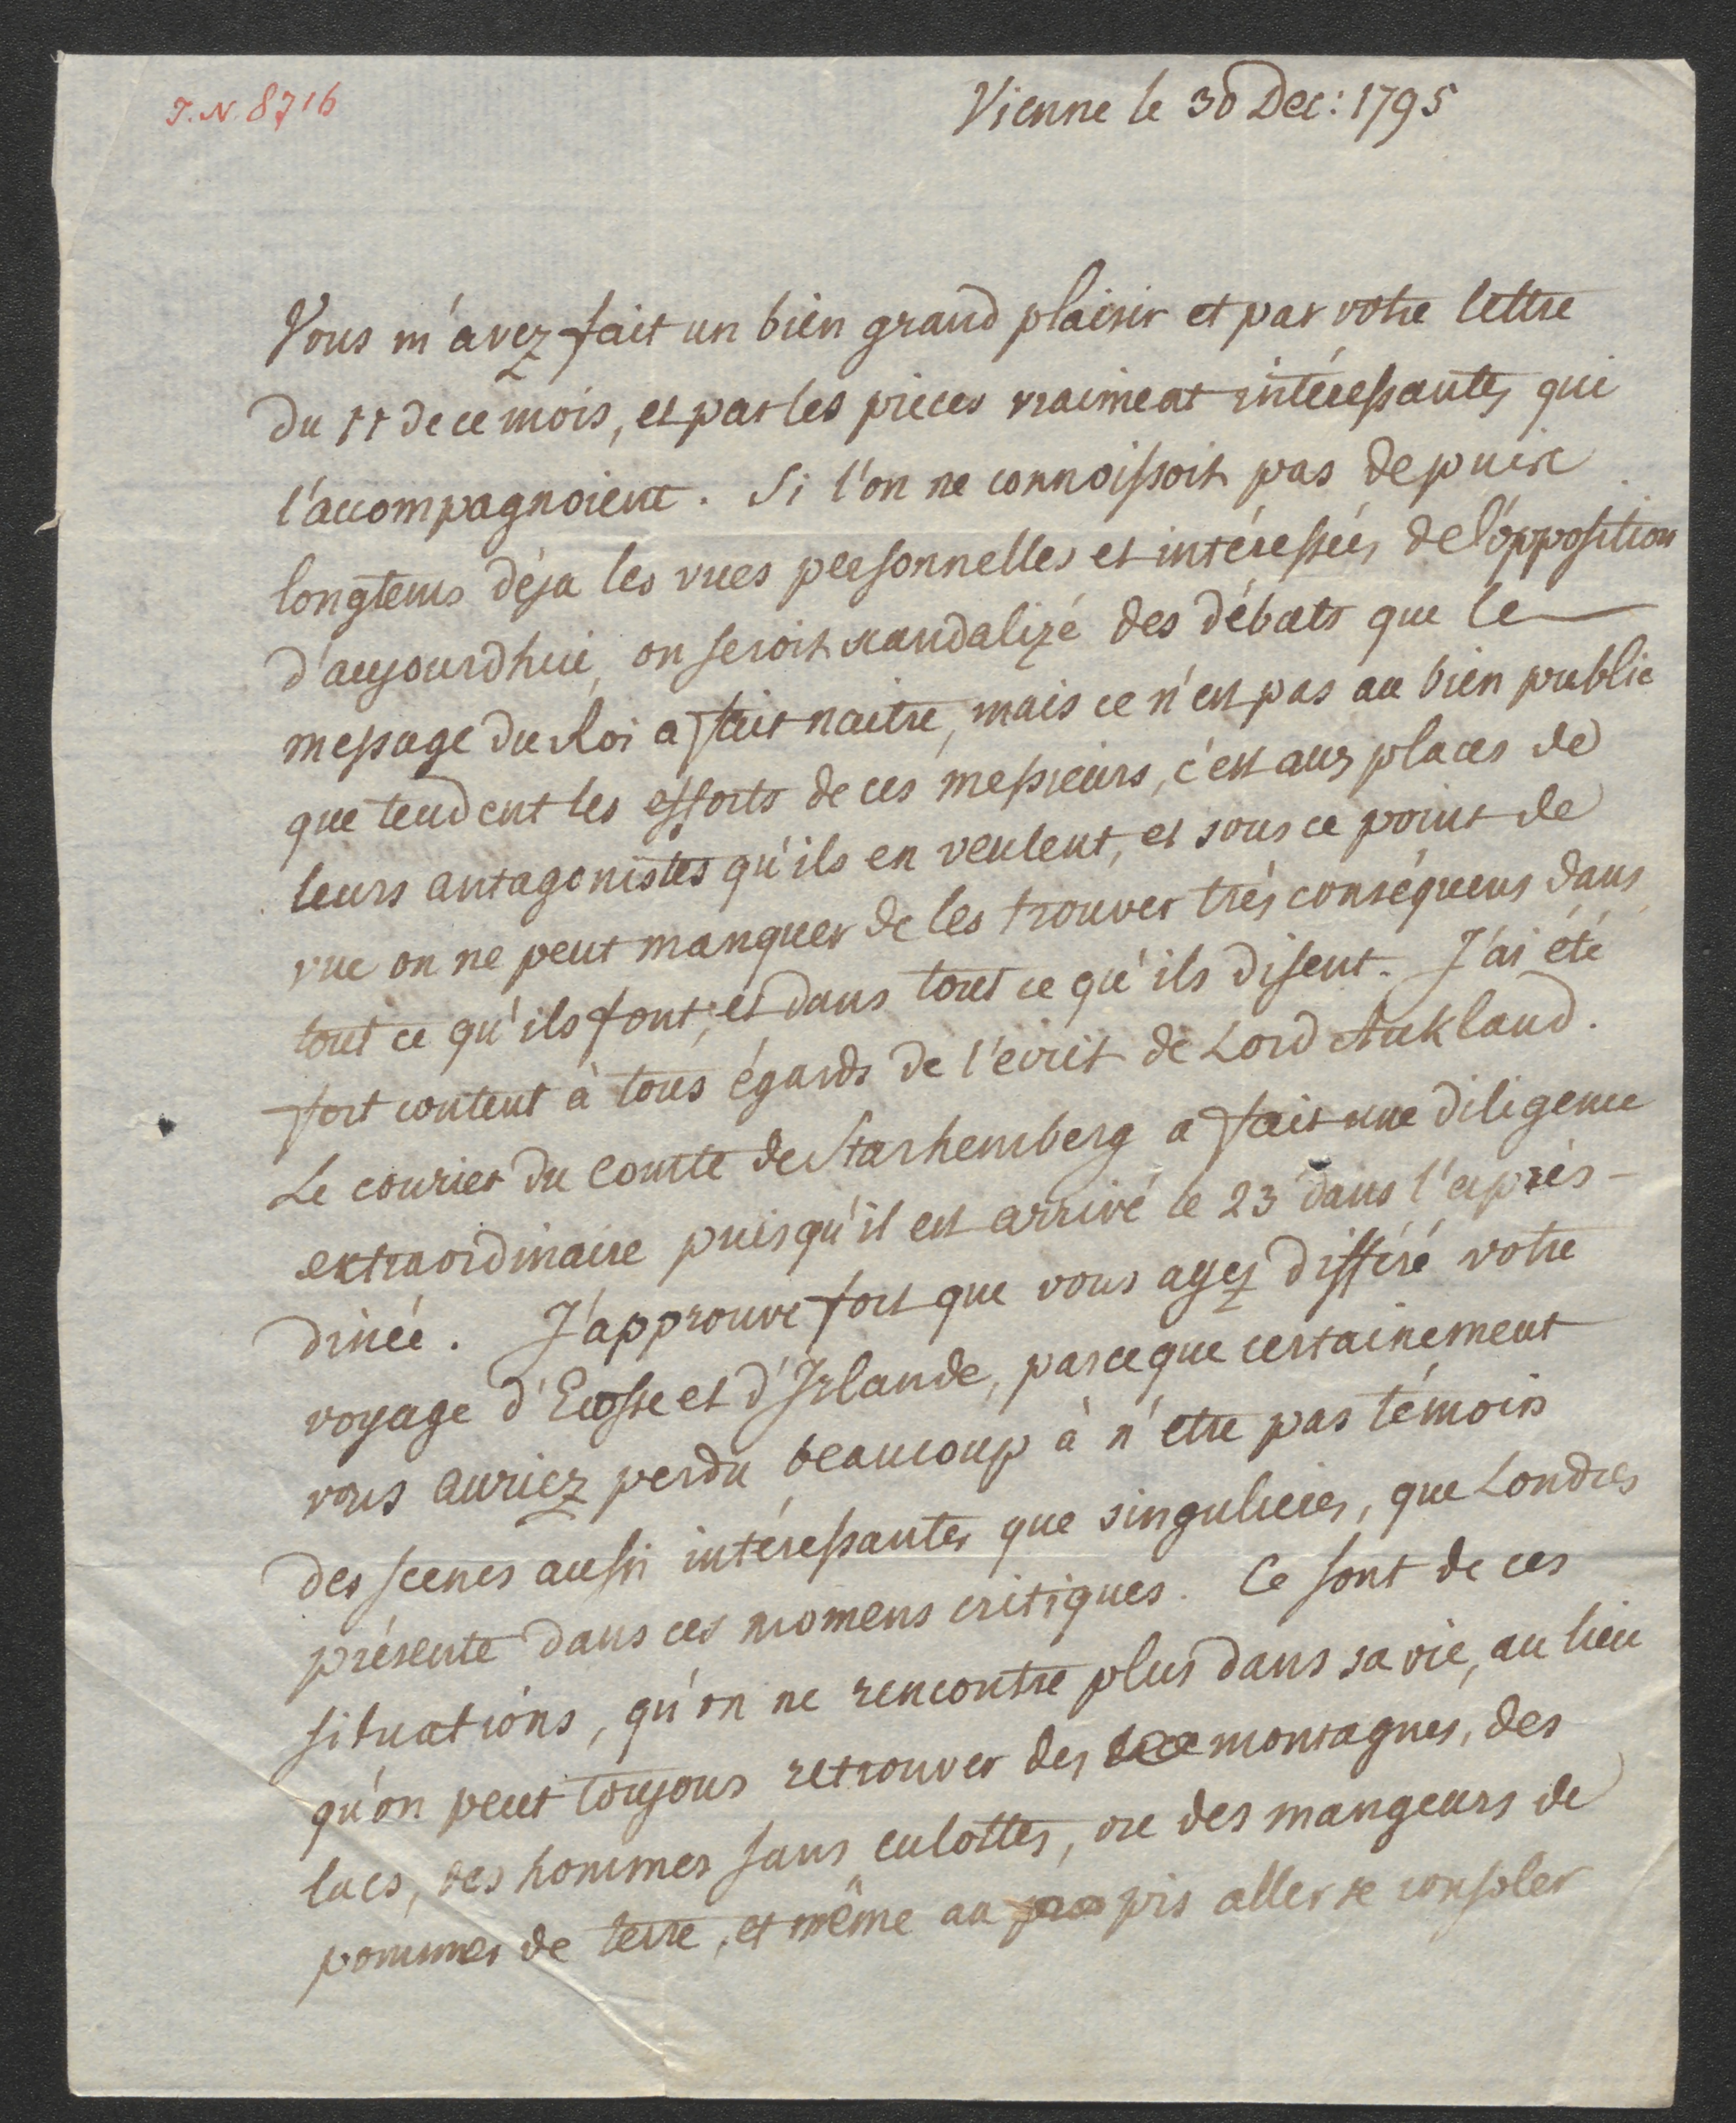 J.N. 8716
Vienne le 30 Dec: 1795
Vous m'avez fait un bien grand plaisir et par votre lettre
du 11 de ce mois, et par les pieces vraiment intéressantes qui
l'accompagnoient. Si l'on ne connoissoit pas depuis
longtems déja les vues personnelles et intéressées de l'opposition
d'aujourdhui, on seroit scandalizé des débats que le
message du Roi a fait naitre, mais ce n'est pas au bien public
que tendent les efforts de ces messieurs, c'est aux places de
leurs antagonistes qu'ils en veulent, et sous ce point de
vue on ne peut manquer de les trouver très conséquens dans
tout ce qu'ils font, et dans tout ce qu'ils disent. J'ai été
fort content à tous égards de l'écrit de Lord Aukland.
Le courier du Comte de Starhemberg a fait une diligence
extraordinaire puisqu'il est arrivé le 23 dans l'après-
dinée. J'approuve fort que vous ayez différé votre
voyage d'Ecosse et d'Irlande, parceque certainement
vous auriez perdu beaucoup à n'etre pas témoin
des scenes aussi intéressantes que singulieres, que Londres
présente dans ces momens critiques. Ce sont de ces
situations, qu'on ne rencontre plus dans sa vie, au lieu
qu'on peut toujours retrouver des montagnes, des
lacs, des hommes sans culottes, ou des mangeurs de
pommes de terre, et même au pis aller se consoler